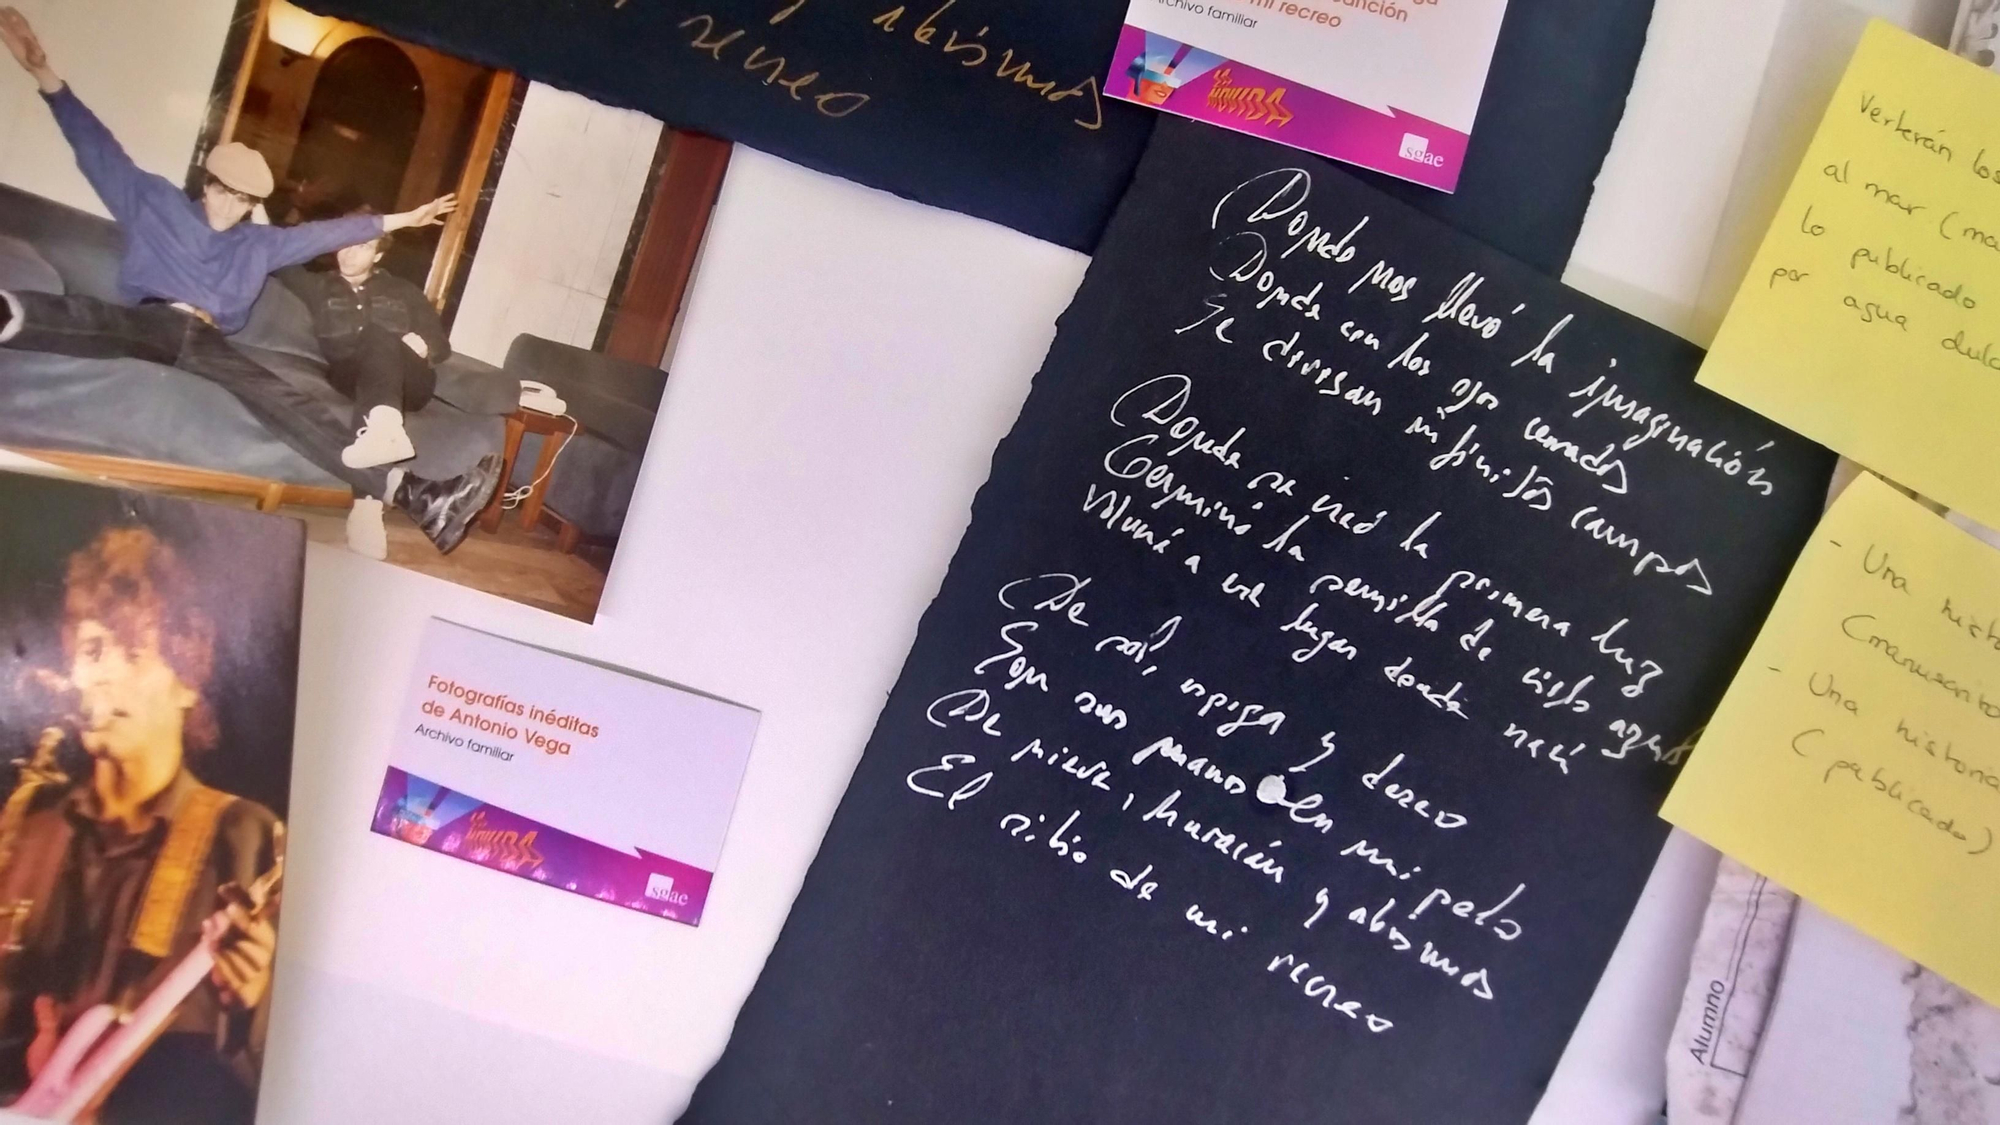 y abismos
recreo
canción
mi recreo
Archivo familiar
LA MOVIDA
sgae
Donde nos llevó la imaginación
Donde con los ojos cerrados
Se divisan infinitos campos
Donde se creó la primera luz
Germinó la semilla de cielo azul
Volveré a ese lugar donde nací
De sol, espiga y deseo
Son sus manos en mi pelo
De nieve, huracán y abismos
El sitio de mi recreo
Fotografías inéditas
de Antonio Vega
Archivo familiar
LA MOVIDA
sgae
Verterán los
al mar (ma
lo publicado
por agua dulc
- Una histo
(manuscrito
- Una historia
(publicada)
Alumno